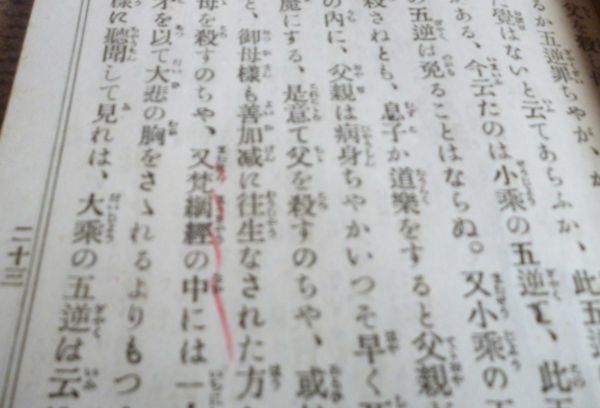 父を殺
るか五逆罪ぢやが、か
た覺はないと云てあらふか、此五
がある、今云たのは小乘の五逆で、此
の五逆は免ることはならぬ。又小乘の五
殺さねとも、息子か道樂をすると父親
の內に、父親は病身ちやかいつそ早く死
魔にする、是意て父を殺すのちや、或
と、御母樣も善加减に往生なされた方
母を殺すのちや、又梵網經の中には一
才を以て大悲の胸をさゝれるよりもつ
樣に聽聞して見れは、大乘の五逆は云
二十三